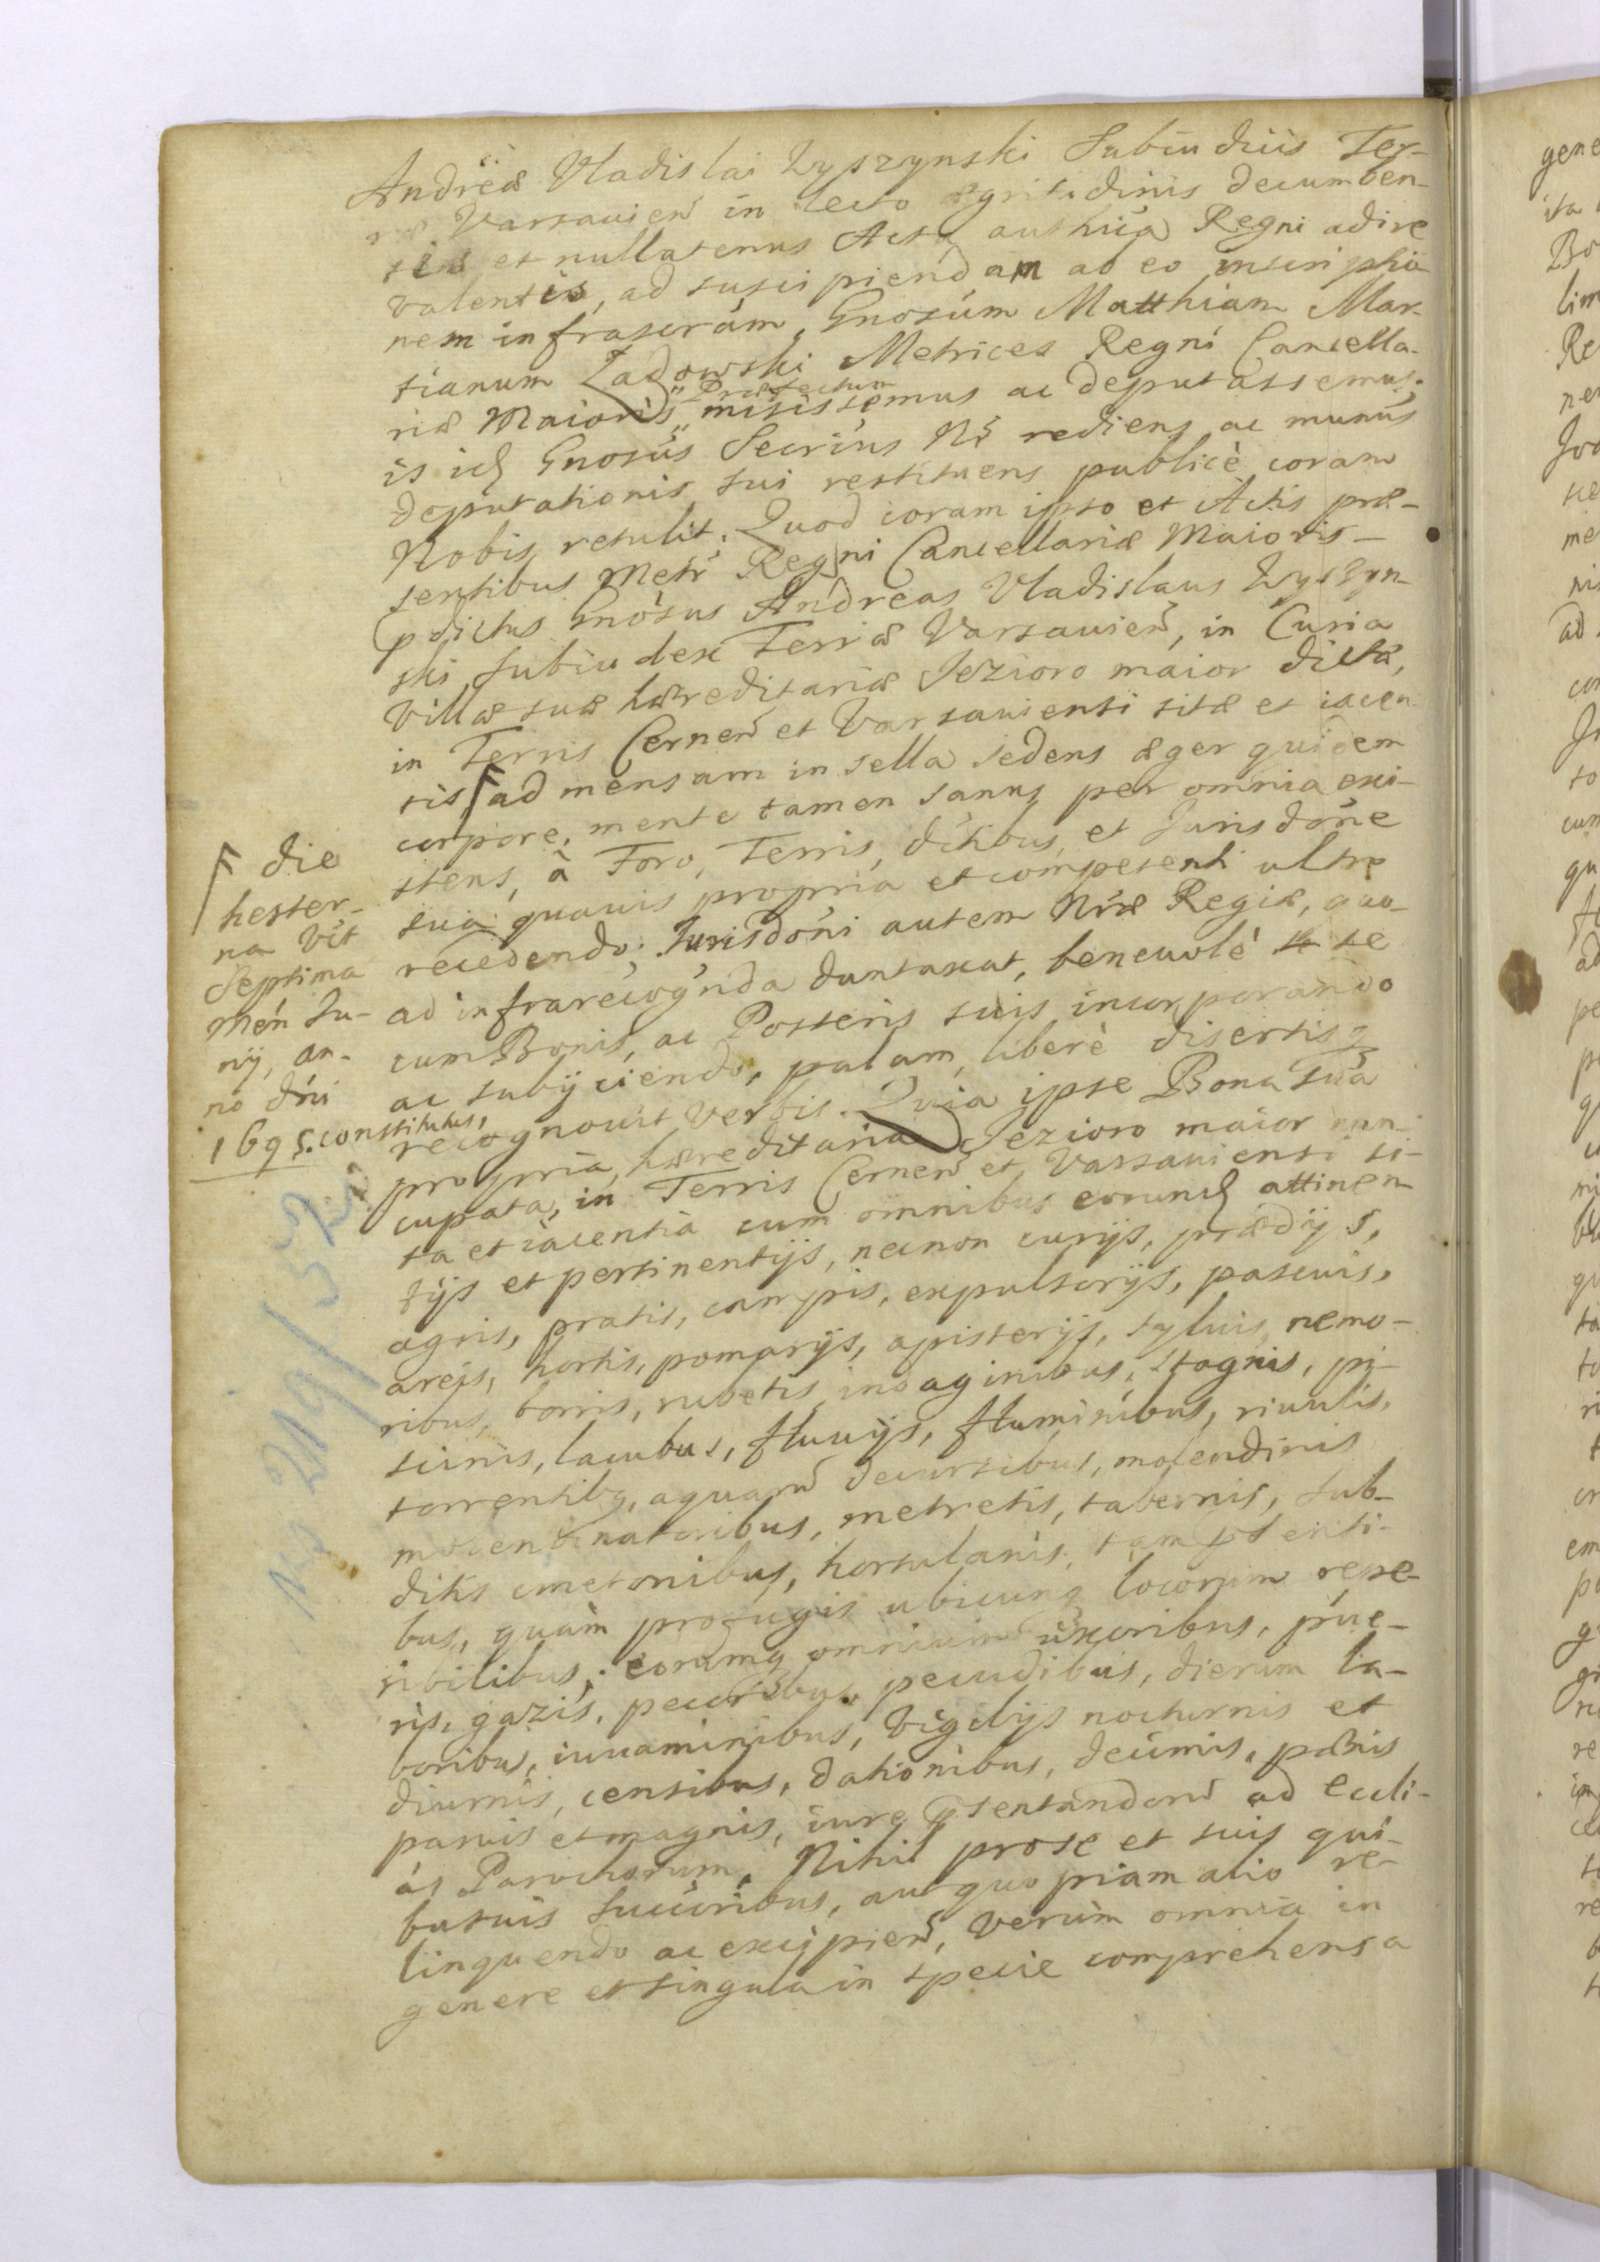 Andreæ Vladislai Lyszynski Subiudicis Ter-
ræ Varsauien in lecto ægritudinis decumben-
tis et nullatenus Acta authica Regni adire
valentis, ad suscipiendam ab eo inscriptio
nem infrascrám, Gnosúm Matthiam Mar-
tianum Ladowski Metrices Regni Cancella-
riæ Maioris Præfectum misissemus ac deputassemus.
is idq Gnosús Secrius Nr rediens ac munus
deputationis sui restituens publicè coram
Nobis retulit. Quod coram ipso et Actis præ-
sentibus Metr Regni Cancellariæ Maioris
pdictus Gnósus Andreas Vladislaus Lyszyn-
ski Subiudex Terræ Varsauien, in Curia
Villæ suæ hæreditariæ Jezioro maior dictæ,
in Terris Cernen et Varsauiensi sitæ et iacen
tis ad mensam in sella sedens æger quidem
corpore, mente tamen sanus per omnia exi-
stens, à Foro, Terris, dítibus, et Jurisdóne
sua quauis propria et competenti ultre
recedendo; Jurisdóni autem Nræ Regiæ, quo-
ad infrarecognda duntaxat, beneuolè se
cum Bonis, ac Posteris suis incorporando
ac subijciendo, palam, liberè disertisq
recognouit verbis. Quia ipse Bona sua
propria, hæreditaria Jezioro maior nun-
cupata, in Terris Cernen et Varsauiensi si-
ta et iacentia cum omnibus eorundq attinen
tijs et pertinentijs, necnon curijs, prædijs,
agris, pratis, campis, expulsorijs, pascuis,
areis, hortis, pomarijs, apisterijs, syluis, nemo-
ribus, borris, rubetis, indaginibus, stagnis, pi-
scinis, lacubus, fluuijs, fluminibus, riuulis,
torrentibq, aquarú decursibus, molendinis
molendinatoribus, metretis, tabernis, sub-
ditis cmetonibus, hortulanis, tam psenti-
bus, quàm profugis ubicunq locorum repe-
ribilibus, eorumq omnium uxoribus, púe-
ris, gazis, pecoribus, pecudibus, dierum la-
boribus, iuuaminibus, vigilijs nocturnis et
diurnis, censibus, dationibus, decimis, pænis
paruis et magnis, iure psentandorú ad Eccli-
ás Parochorum. Nihil pro se et suis qui-
busuis succribus, aut quopiam alio re-
linquendo ac excipien, verùm omnia in
genere et singula in specie comprehensa
die
hester-
na vit
Septima
Mén Ju-
nij, an-
no dni
1695. constitutus,